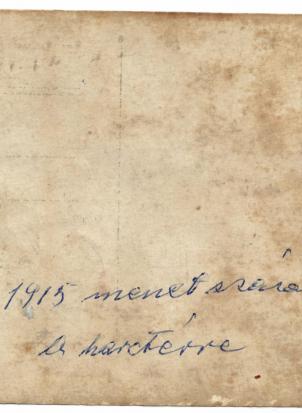 1915 menet száza
a harctérre